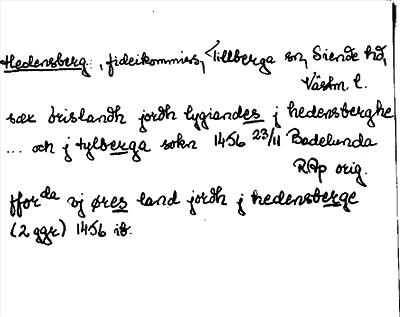 Hedensberg, fideikommiss, Tillberga sn, Siende hd,
Västm l.
sæx örislandh jordh lygiandes j hedensberghe
... och j tylberga sokn 1456 23/11 Badelunda
RAp orig.
fforda vj øres land jordh j hedensberge
(2 ggr) 1456 ib.